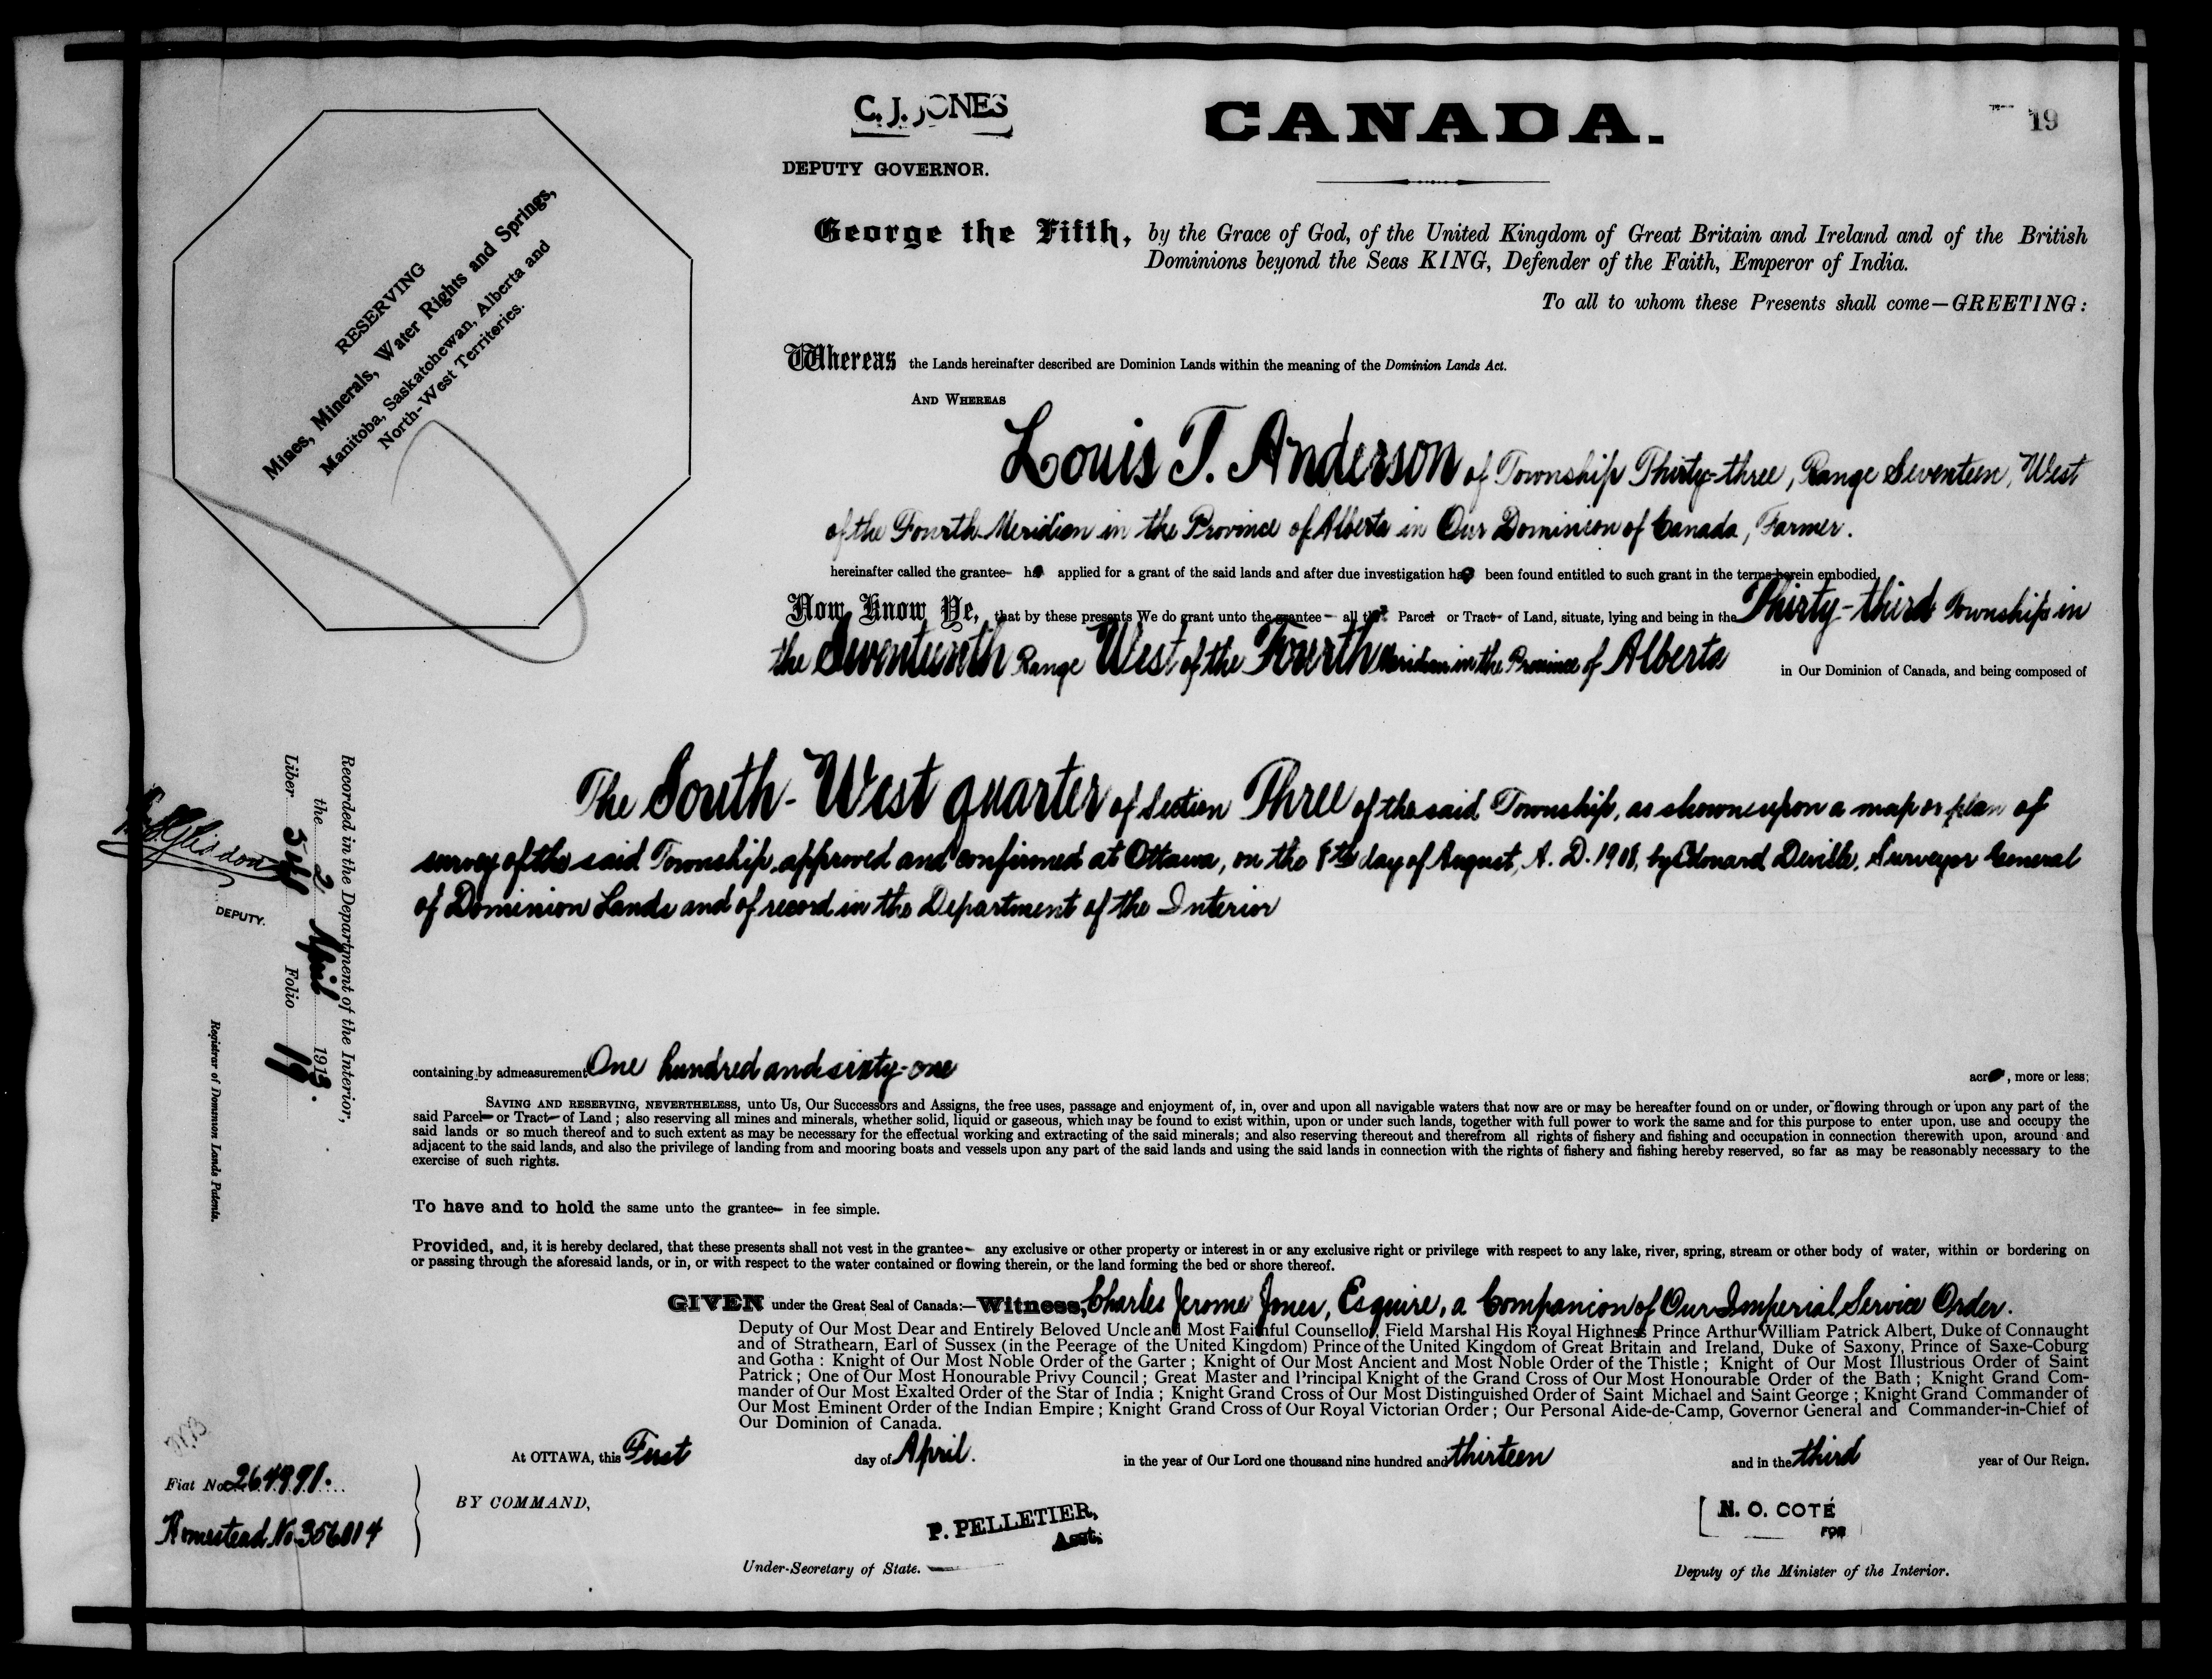 C. J. JONES
DEPUTY GOVERNOR.
CANADA.
19
RESERVING
Mines, Minerals, Water Rights and Springs,
Manitoba, Saskatchewan, Alberta and
North-West Territories.
George the Fifth, by the Grace of God, of the United Kingdom of Great Britain and Ireland and of the British
Dominions beyond the Seas KING, Defender of the Faith, Emperor of India.
To all to whom these Presents shall come—GREETING:
Whereas the Lands hereinafter described are Dominion Lands within the meaning of the Dominion Lands Act.
AND WHEREAS
Louis T. Anderson of Township Thirty-three, Range Seventeen, West
of the Fourth Meridian in the Province of Alberta in Our Dominion of Canada, Farmer.
hereinafter called the grantee- has applied for a grant of the said lands and after due investigation has been found entitled to such grant in the terms herein embodied
Now Know Ye, that by these presents We do grant unto the grantee- all that Parcel or Tract- of Land, situate, lying and being in the Thirty-third Township in
the Seventeenth Range West of the Fourth Meridian in the Province of Alberta in Our Dominion of Canada, and being composed of
The South-West quarter of Section Three of the said Township, as shown upon a map or plan of
survey of the said Township approved and confirmed at Ottawa, on the 8th day of August, A. D. 1908, by Edouard Deville, Surveyor General
of Dominion Lands and of record in the Department of the Interior
containing by admeasurement One hundred and sixty-one acres, more or less;
SAVING AND RESERVING, NEVERTHELESS, unto Us, Our Successors and Assigns, the free uses, passage and enjoyment of, in, over and upon all navigable waters that now are or may be hereafter found on or under, or flowing through or upon any part of the
said Parcel- or Tract- of Land; also reserving all mines and minerals, whether solid, liquid or gaseous, which may be found to exist within, upon or under such lands, together with full power to work the same and for this purpose to enter upon, use and occupy the
said lands or so much thereof and to such extent as may be necessary for the effectual working and extracting of the said minerals; and also reserving thereout and therefrom all rights of fishery and fishing and occupation in connection therewith upon, around and
adjacent to the said lands, and also the privilege of landing from and mooring boats and vessels upon any part of the said lands and using the said lands in connection with the rights of fishery and fishing hereby reserved, so far as may be reasonably necessary to the
exercise of such rights.
To have and to hold the same unto the grantee- in fee simple.
Provided, and, it is hereby declared, that these presents shall not vest in the grantee- any exclusive or other property or interest in or any exclusive right or privilege with respect to any lake, river, spring, stream or other body of water, within or bordering on
or passing through the aforesaid lands, or in, or with respect to the water contained or flowing therein, or the land forming the bed or shore thereof.
GIVEN under the Great Seal of Canada:—Witness, Charles Jerome Jones, Esquire, a Companion of Our Imperial Service Order.
Deputy of Our Most Dear and Entirely Beloved Uncle and Most Faithful Counsellor, Field Marshal His Royal Highness Prince Arthur William Patrick Albert, Duke of Connaught
and of Strathearn, Earl of Sussex (in the Peerage of the United Kingdom) Prince of the United Kingdom of Great Britain and Ireland, Duke of Saxony, Prince of Saxe-Coburg
and Gotha: Knight of Our Most Noble Order of the Garter; Knight of Our Most Ancient and Most Noble Order of the Thistle; Knight of Our Most Illustrious Order of Saint
Patrick; One of Our Most Honourable Privy Council; Great Master and Principal Knight of the Grand Cross of Our Most Honourable Order of the Bath; Knight Grand Com-
mander of Our Most Exalted Order of the Star of India; Knight Grand Cross of Our Most Distinguished Order of Saint Michael and Saint George; Knight Grand Commander of
Our Most Eminent Order of the Indian Empire; Knight Grand Cross of Our Royal Victorian Order; Our Personal Aide-de-Camp, Governor General and Commander-in-Chief of
Our Dominion of Canada.
At OTTAWA, this First day of April. in the year of Our Lord one thousand nine hundred and thirteen and in the third year of Our Reign.
BY COMMAND,
P. PELLETIER,
Asst.
Under-Secretary of State.
N. O. COTÉ
FOR
Deputy of the Minister of the Interior.
Recorded in the Department of the Interior,
the 2 April 1913.
Liber Folio 19
DEPUTY.
Registrar of Dominion Lands Patents.
Fiat No 264991.
Homestead No 356014